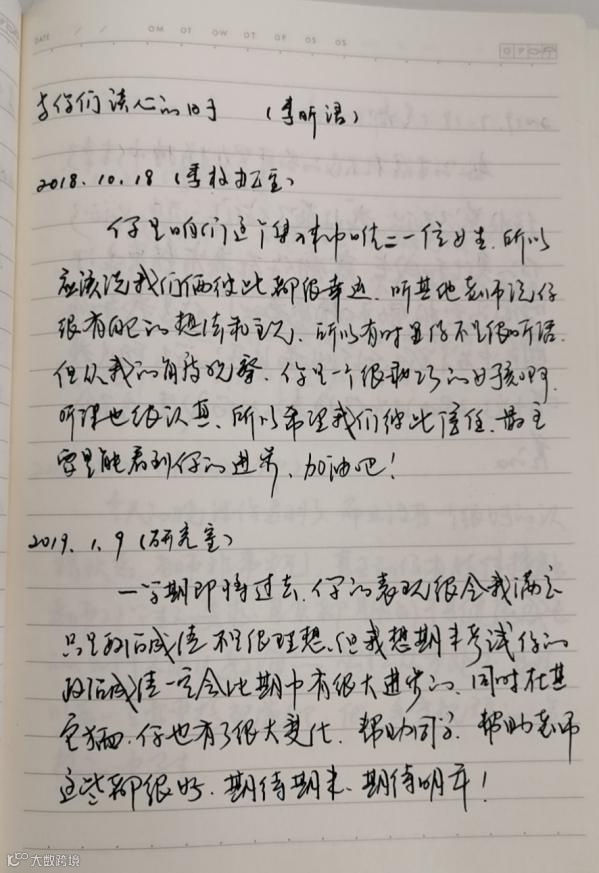 DATE / /
MO MT OW OT OF OS OS
与你们谈心的日子 (李昕语)
2018.10.18 (季校办公室)
你是咱们这个集体中唯二一位女生,所以
应该说我们俩彼此都很幸运,听其他老师说你
很有自己的想法和主见,所以有时显得不是很听话,
但从我的角度观察,你是一个很聪明的女孩啊,
听课也很认真,所以希望我们彼此信任,最主
要是能看到你的进步,加油吧!
2019.1.9 (研究室)
一学期即将过去,你的表现很令我满意
只是政治成绩不是很理想,但我想期末考试你的
政治成绩一定会比期中有很大进步的,同时在其
它方面,你也有了很大变化,帮助同学,帮助老师
这些都很好,期待期末、期待明年!
大数跨境